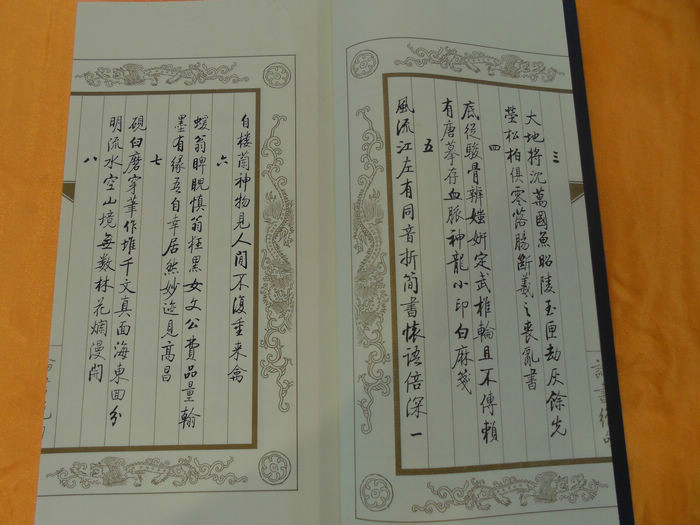 三
大地将沉万國魚昭陵玉匣劫灰餘先
塋松柏俱零落腸斷羲之喪亂書
四
底從駿骨辨媸妍定武椎輪且不傳賴
有唐摹存血脈神龍小印白麻箋
五
風流江左有同音折簡書懷語倍深一
自楼蘭神物見人間不復重来禽
六
蝯翁睥睨慎翁狂黑女文公費品量翰
墨有緣吾自幸居然妙迹見高昌
七
硯臼磨穿筆作堆千文真面海東回分
明流水空山境無數林花爛漫開
八